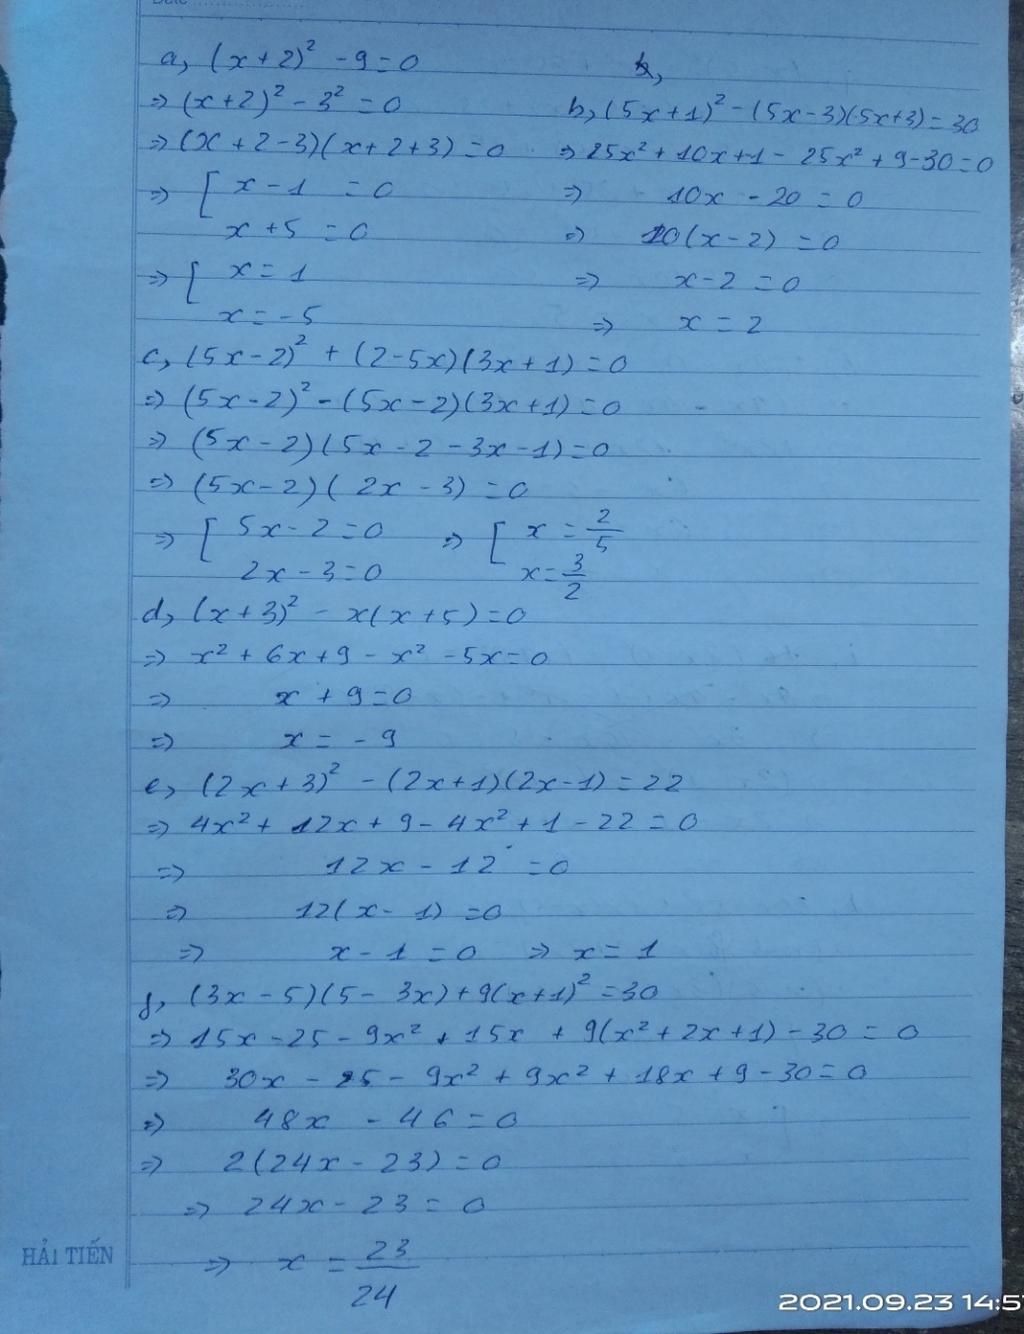 a, (x+2)² - 9 = 0
=> (x+2)² - 3² = 0
=> (x+2-3)(x+2+3) = 0
=> [ x - 1 = 0
x + 5 = 0
=> [ x = 1
x = -5
b, (5x+1)² - (5x-3)(5x+3) = 30
=> 25x² + 10x + 1 - 25x² + 9 - 30 = 0
=> 10x - 20 = 0
=> 10(x-2) = 0
=> x - 2 = 0
=> x = 2
c, (5x-2)² + (2-5x)(3x+1) = 0
=> (5x-2)² - (5x-2)(3x+1) = 0
=> (5x-2)(5x-2-3x-1) = 0
=> (5x-2)(2x-3) = 0
=> [ 5x-2 = 0 => [ x = 2/5
2x-3 = 0 x = 3/2
d, (x+3)² - x(x+5) = 0
=> x² + 6x + 9 - x² - 5x = 0
=> x + 9 = 0
=> x = -9
e, (2x+3)² - (2x+1)(2x-1) = 22
=> 4x² + 12x + 9 - 4x² + 1 - 22 = 0
=> 12x - 12 = 0
=> 12(x-1) = 0
=> x - 1 = 0 => x = 1
f, (3x-5)(5-3x) + 9(x+1)² = 30
=> 15x - 25 - 9x² + 15x + 9(x² + 2x + 1) - 30 = 0
=> 30x - 25 - 9x² + 9x² + 18x + 9 - 30 = 0
=> 48x - 46 = 0
=> 2(24x - 23) = 0
=> 24x - 23 = 0
=> x = 23/24
HẢI TIẾN
2021.09.23 14:5